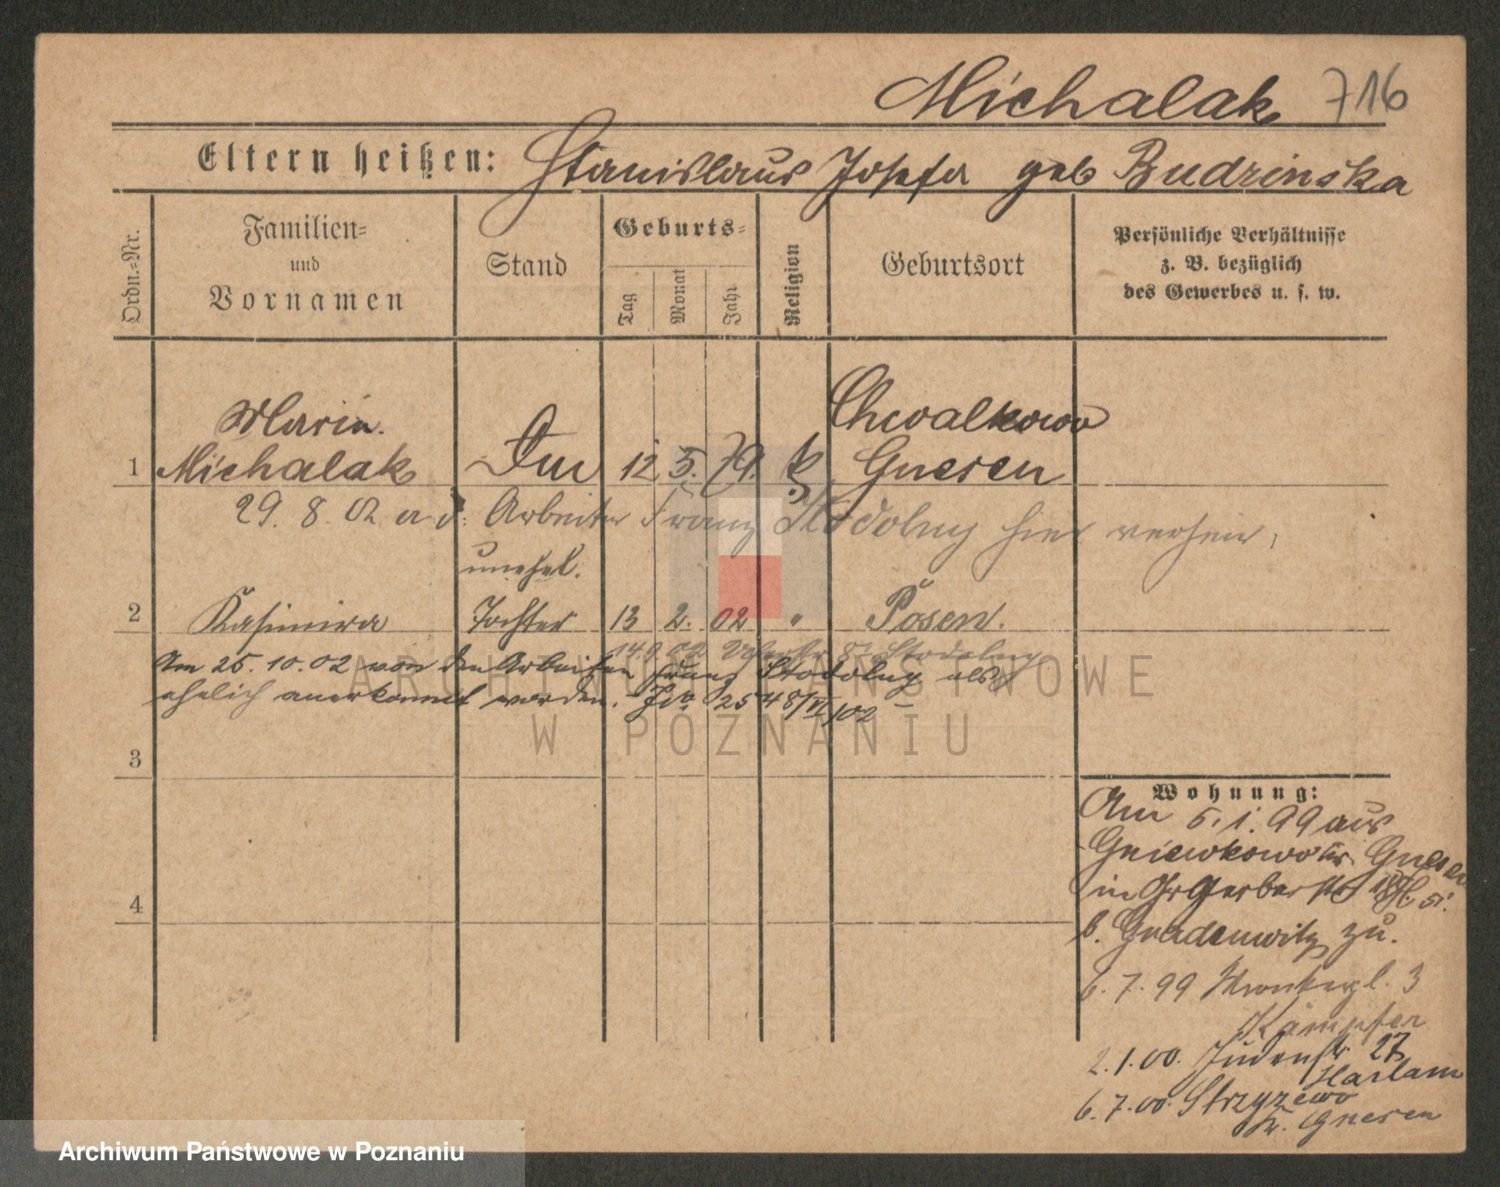 Michalak 716
Eltern heißen: Stanislaus Josefa geb Budzinska
Ordn.-Nr.
Familien-
und
Vornamen
Stand
Geburts-
Tag
Monat
Jahr
Religion
Geburtsort
Persönliche Verhältnisse
z. B. bezüglich
des Gewerbes u. s. w.
Maria
Chwalkowo
1 Michalak 12 5. 79. k Gnesen
29. 8. 02 a. d. Arbeiter Franz Stodolny hier verheir.
unehel.
2 Kasimira Tochter 13 2. 02 " Posen.
14.9.02 Stodolny
Am 25.10.02 von dem Arbeiter Franz Stodolny als
ehelich anerkannt worden. 2548/VI/02
ARCHIWUM PAŃSTWOWE
W POZNANIU
3
4
Wohnung:
Am 5.1.99 aus
Gniewkowo Kr. Gnesen
in Gr Gerberstr
b. Gradenwitz zu.
6.7.99 Wronkerpl. 3
Kämpfer
2.1.00. Judenstr. 27
6.7.00. Strzyzewo
Kr. Gnesen
Archiwum Państwowe w Poznaniu